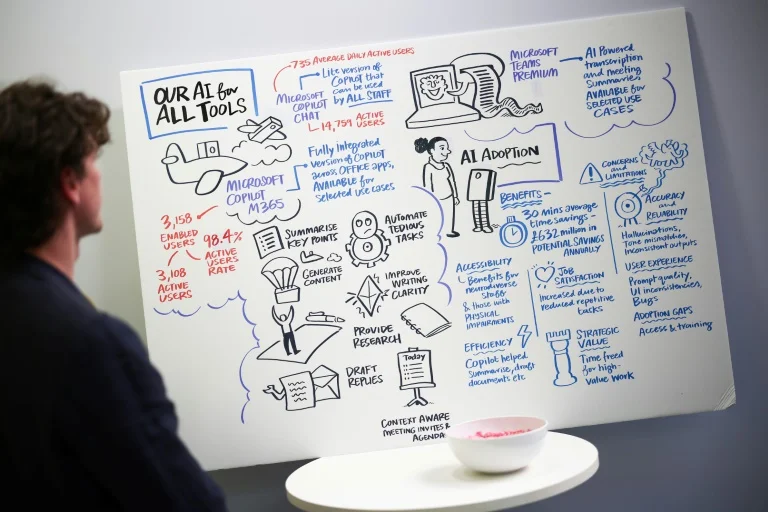 OUR AI for
ALL TOOLS
735 AVERAGE DAILY ACTIVE USERS
MICROSOFT
COPILOT
CHAT
Lite version of
COPILOT that
can be used
by ALL STAFF
14,759 ACTIVE
USERS
MICROSOFT
COPILOT
M365
Fully integrated
version of COPILOT
across OFFICE apps,
AVAILABLE for
selected use cases
3,158
ENABLED
USERS
98.4%
ACTIVE
USERS
RATE
3,108
ACTIVE
USERS
SUMMARISE
KEY POINTS
AUTOMATE
TEDIOUS
TASKS
GENERATE
CONTENT
IMPROVE
WRITING
CLARITY
PROVIDE
RESEARCH
DRAFT
REPLIES
Today
CONTEXT AWARE
MEETING INVITES &
AGENDA
MICROSOFT
TEAMS
PREMIUM
AI Powered
transcription
and meeting
Summaries
AVAILABLE for
SELECTED USE
CASES
AI ADOPTION
BENEFITS-
30 mins average
time savings -
£632 million in
POTENTIAL SAVINGS
ANNUALLY
ACCESSIBILITY
Benefits for
neurodiverse
staff
& those with
PHYSICAL
IMPAIRMENTS
JOB
SATISFACTION
Increased due to
reduced repetitive
tasks
EFFICIENCY
Copilot helped
summarise, draft
documents etc
STRATEGIC
VALUE
Time freed
for high-
value work
CONCERNS
and
LIMITATIONS
ACCURACY
and
RELIABILITY
Hallucinations,
Tone mismatches,
inconsistent outputs
USER EXPERIENCE
Prompt quality,
UI inconsistencies,
Bugs
ADOPTION GAPS
Access & training